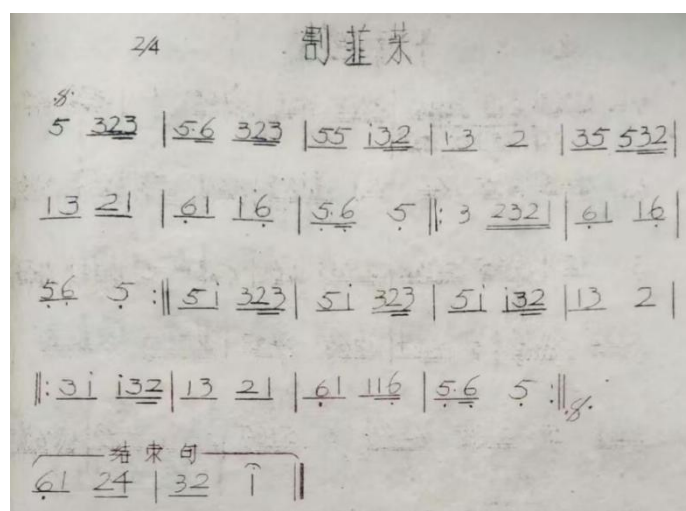 2/4 割韭菜
.8.
5 323 | 5·6 323 | 55 i32 | i3 2 | 35 532 |
13 21 | 61 16 | 5·6 5 ‖: 3 2321 | 61 16 |
56 5 :‖ 5i 323 | 5i 323 | 5i i32 | 13 2 |
‖: 3i i32 | 13 21 | 61 116 | 5·6 5 :‖ .8.
结束句
61 24 | 32 1 ‖